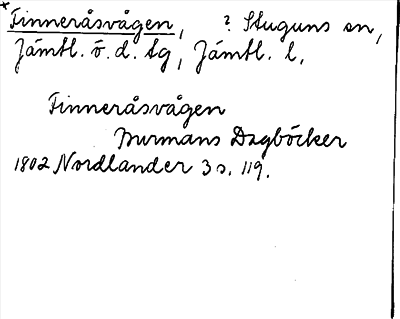 *Finneråsvågen, ? Stuguns sn,
Jämtl. ö. d. tg, Jämtl. l.
Finneråsvågen
Burmans Dagböcker
1802 Nordlander 3 s. 119.